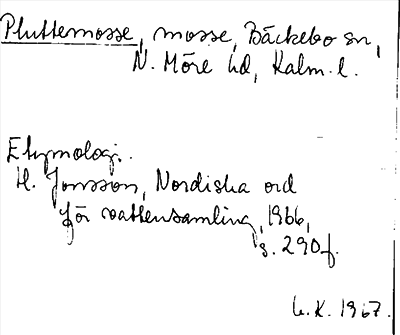 Pluttemosse, mosse, Bäckebo sn,
N. Möre hd, Kalm. l.
Etymologi:
H. Jonsson, Nordiska ord
för vattensamling, 1966,
s. 290 f.
U.K. 1967.